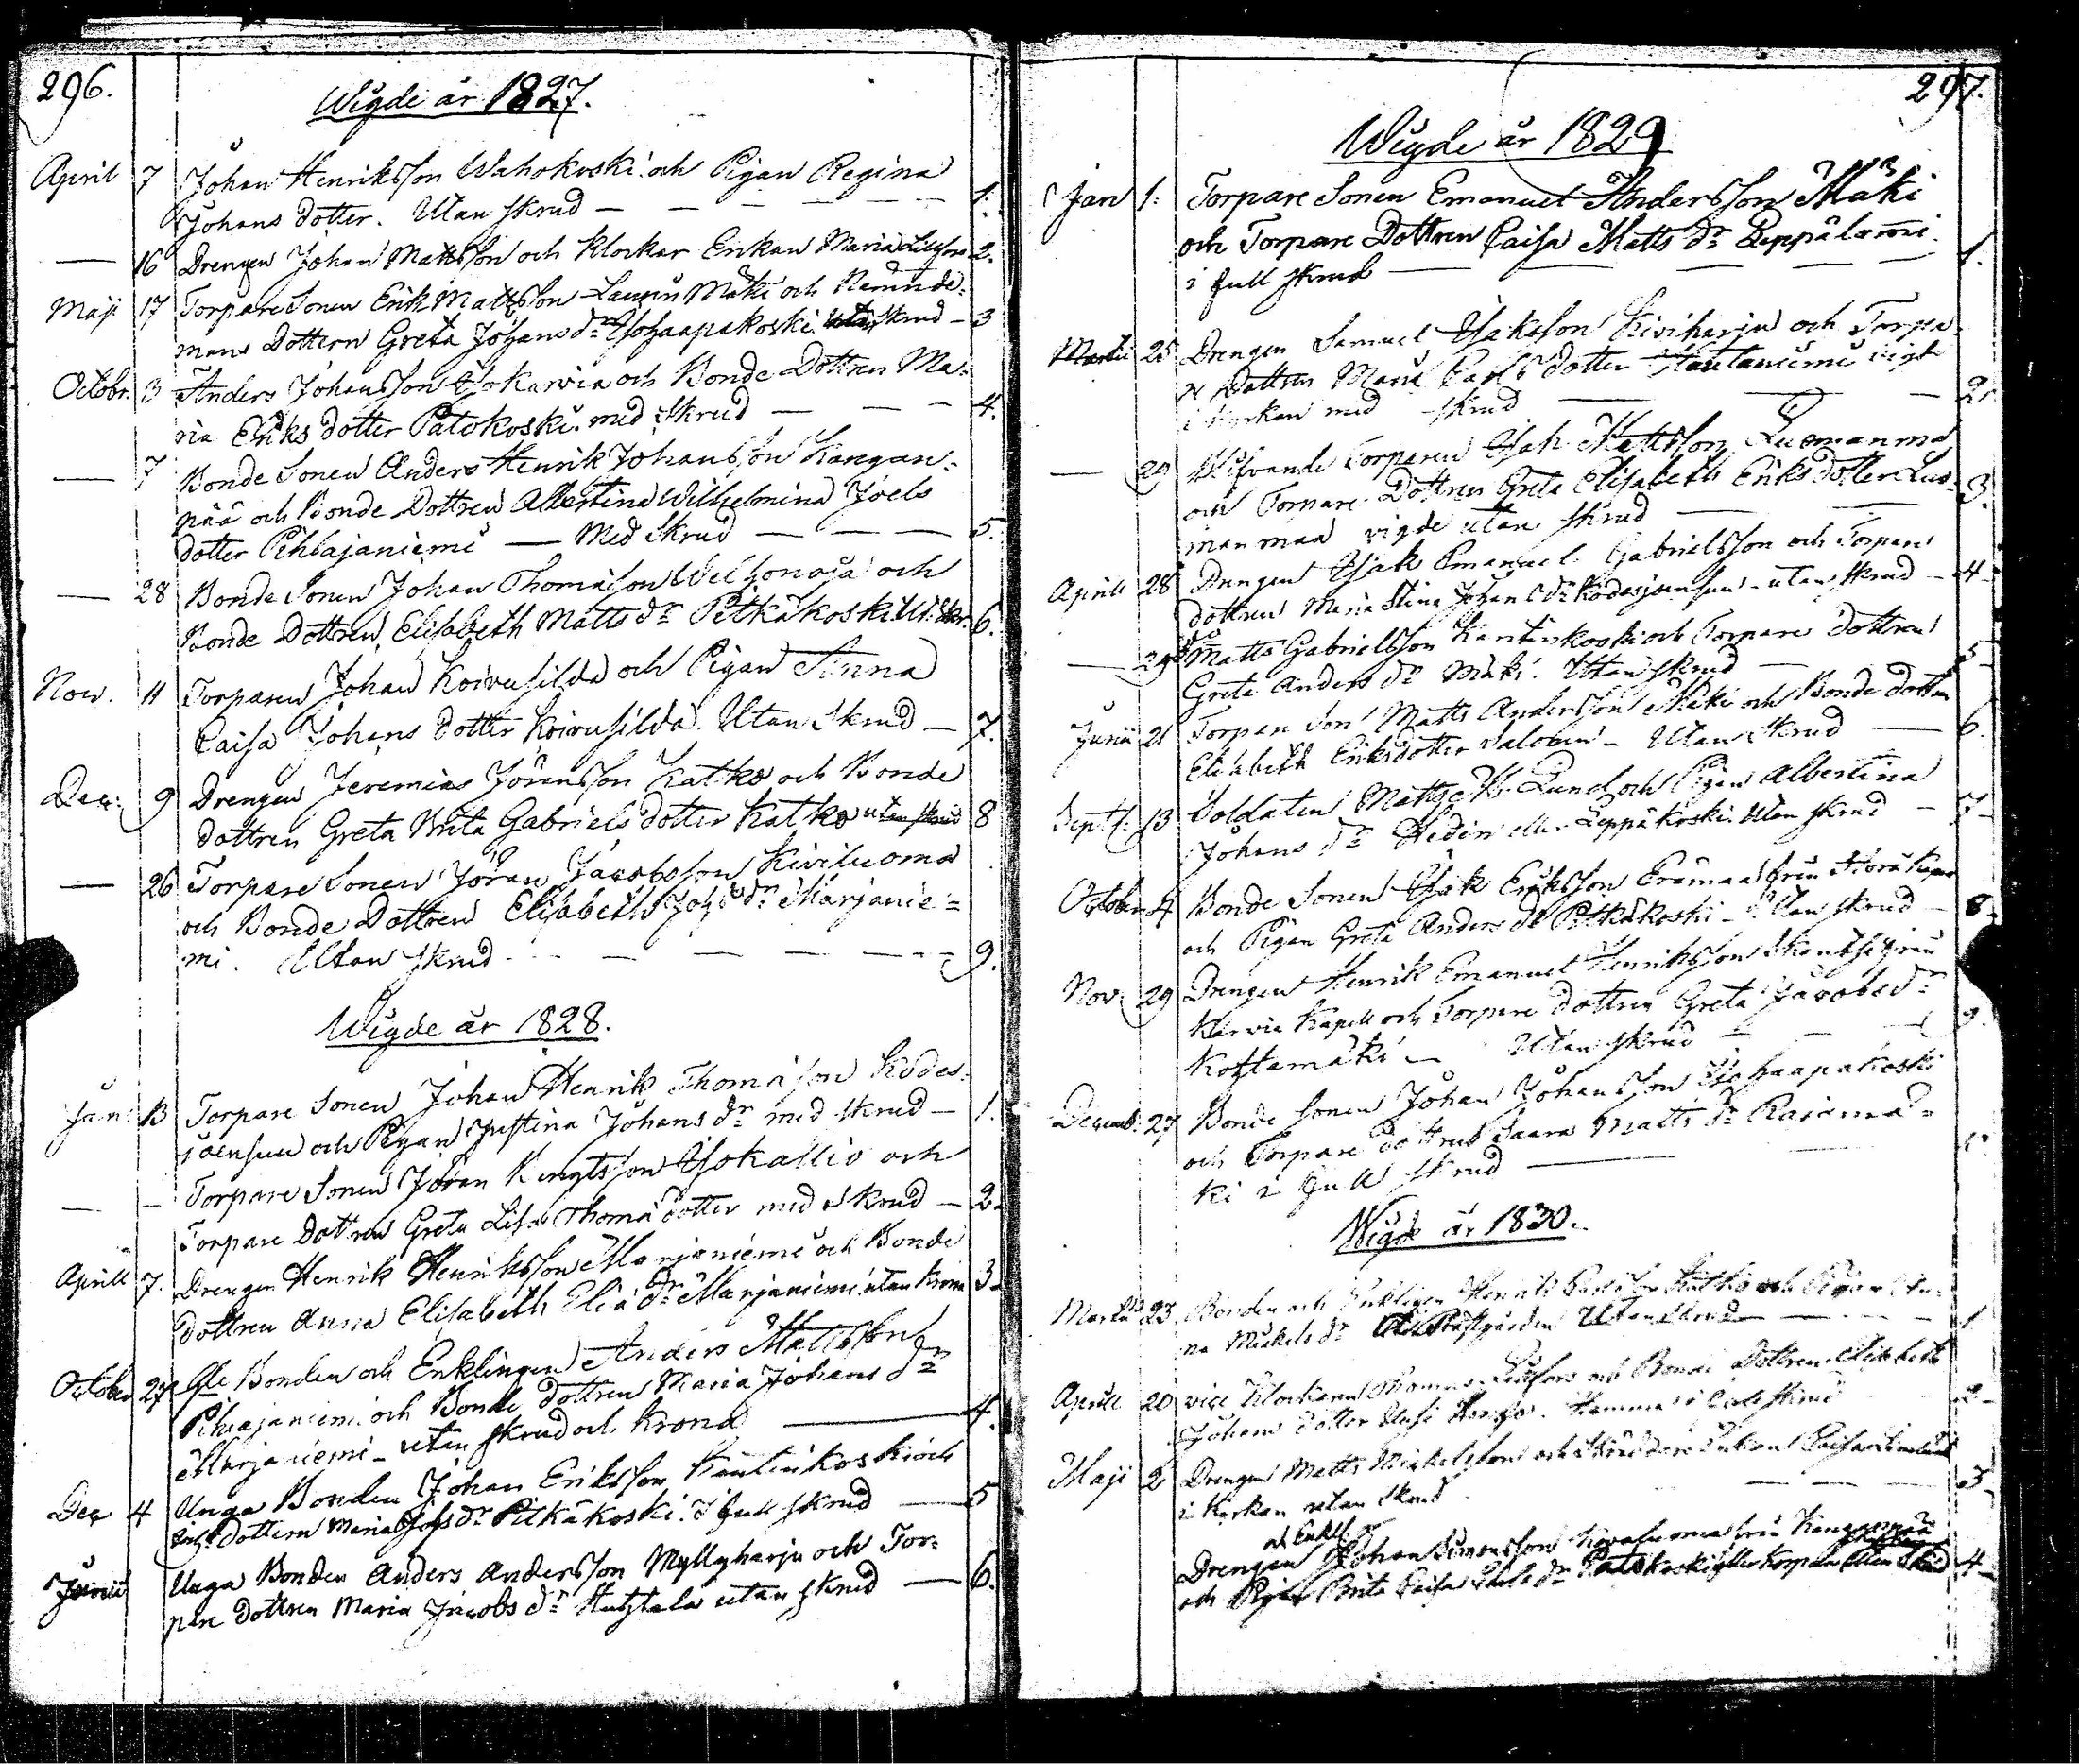 296.
Wigde år 1827.
April 7 Johan Henriksson Wahokoski och Pigan Regina
Johans dotter. Utan skrud — 1.
— 16 Drengen Johan Mattsson och Klockar Enkan Maria 2.
Maji 17 Torpare Sonen Erik Mattsson Mäki och Nämnde-
mans Dottern Greta Johans dr Isohaapakoski skrud — 3
Octobr. 3 Anders Johansson Isokarvia och Bonde Dottren Ma-
ria Eriks dotter Patokoski. med skrud — 4.
— 7 Bonde Sonen Anders Henrik Johansson Kangan-
pää och Bonde Dottren Albertina Wilhelmina Joels
dotter Pihlajaniemi — Med Skrud — 5.
— 28 Bonde Sonen Johan Thomasson och
Bonde Dottren Elisabeth Matts dr Pitkäkoski U. Skr. 6.
Nov. 11 Torparen Johan Koivusilda och Pigan Anna
Caisa Johans dotter Koivusilda. Utan Skrud — 7.
Dec: 9 Drengen Jeremias Jöransson Katko och Bonde
dottren Greta Brita Gabriels dotter Katko utan skrud 8
— 26 Torpare Sonen Jöran Jacobsson Kiviluoma
och Bonde Dottren Elisabeth Johs dr Marjanie-
mi. Utan skrud — 9.
Wigde år 1828.
Jan: 13 Torpare Sonen Johan Henrik Thomasson Ködes-
joensuu och Pigan Justina Johans dr med skrud — 1.
— — Torpare Sonen Jöran Isokallio och
Torpare Dottren Greta Lisa Thomä dotter med skrud — 2.
Aprill 7. Drengen Henrik Henriksson Marjaniemi och Bonde
dottren Anna Elisabeth Eliä dr Marjaniemi utan krona 3
October 27 Gle Bonden och Enklingen Anders Mattsson
Pihlajaniemi och Bonde dottren Maria Johans dr
Marjaniemi — utan skrud och Krona — 4.
Dec 4 Unga Bonden Johan Eriksson Kantinkoski och
dottern Maria Johs dr Pitkäkoski. i full skrud — 5
Junii Unga Bonden Anders Andersson Myllyharju och Tor-
pare dottren Maria Jacobs dr utan skrud — 6.
297.
Wigde år 1829
Jan 1. Torpare Sonen Emanuel Andersson Mäki
och Torpare Dottren Caisa Matts dr Leppälammi
i full skrud — 1.
Martii 25 Drengen Samuel Isaksson Kiviharju och Torpa-
re Dottren Maria Carls dotter Hautaniemi vigde
i kyrkan med skrud — 2.
— 29 Torparen Isak Mattsson Luomanmaa
och Torpare Dottren Greta Elisabeth Eriks dotter Luo-
manmaa vigde utan skrud — 3.
Aprill 28 Drengen Isak Emanuel Gabrielsson och Torpare
dottren Maria Stina Johans dr Ködesjoensuu — utan skrud — 4
— 29 Matts Gabrielsson Kantinkoski och Torpare dottren
Greta Anders dr Mäki. Utan skrud — 5
Junii 21 Torpare Son Matts Andersson Mäki och Bonde dottren
Elisabeth Eriksdotter — Utan skrud — 6.
Septb: 13 Soldaten Matts Lund och Pigan Albertina
Johans dr Hedin eller Leppäkoski utan skrud — 7
October 4 Bonde Sonen Isak Eriksson Erämaa från
och Pigan Greta Anders dr Pitkäkoski — Utan skrud — 8
Nov 29 Drengen Henrik Emanuel Henriksson från
Karvia Kapell och Torpare dottren Greta Jacobs dr
— Utan skrud — 9.
Decemb: 27 Bonde Sonen Johan Johansson Isohaapakoski
och Torpare dottren Saara Matts dr Rajamä-
ki i full skrud —
Wigde år 1830.
Martii 23 Bonden och Enklingen Henrik Katko och Pigan An-
na Mickels dr Utan skrud — 1
Aprill 20 vice Klockaren Thomas och Bonde Dottren Elisabeth
Johans dotter — 2
Maji 2 Drengen Matts Mickelsson och Caisa
i Kyrkan utan skrud — 3
Drengen och Enkl. Johan Simonsson från Kangas
och Pigan Brita Caisa dr Patokoski eller Korpan utan skrud 4